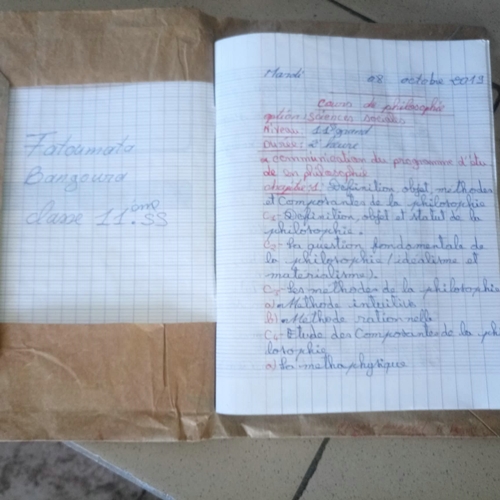 Fatoumata
Bangoura
classe 11ème SS
Mardi 08 octobre 2019
Cours de philosophie
option: sciences sociales
Niveau: 11e grand
Durée: 2 heure
communication du programme d'étu
de en philosophie
chapitre 1: Definition, objet, methodes
et Composantes de la philosophie
C1- Definition, objet et statut de la
philosophie.
C2- La question fondamentale de
la philosophie (idéalisme et
matérialisme).
C3- Les methodes de la philosophie
a) Methode intuitive
b) Methode rationnelle
C4- Etude des Composantes de la phi
losophie
a) La methaphysique